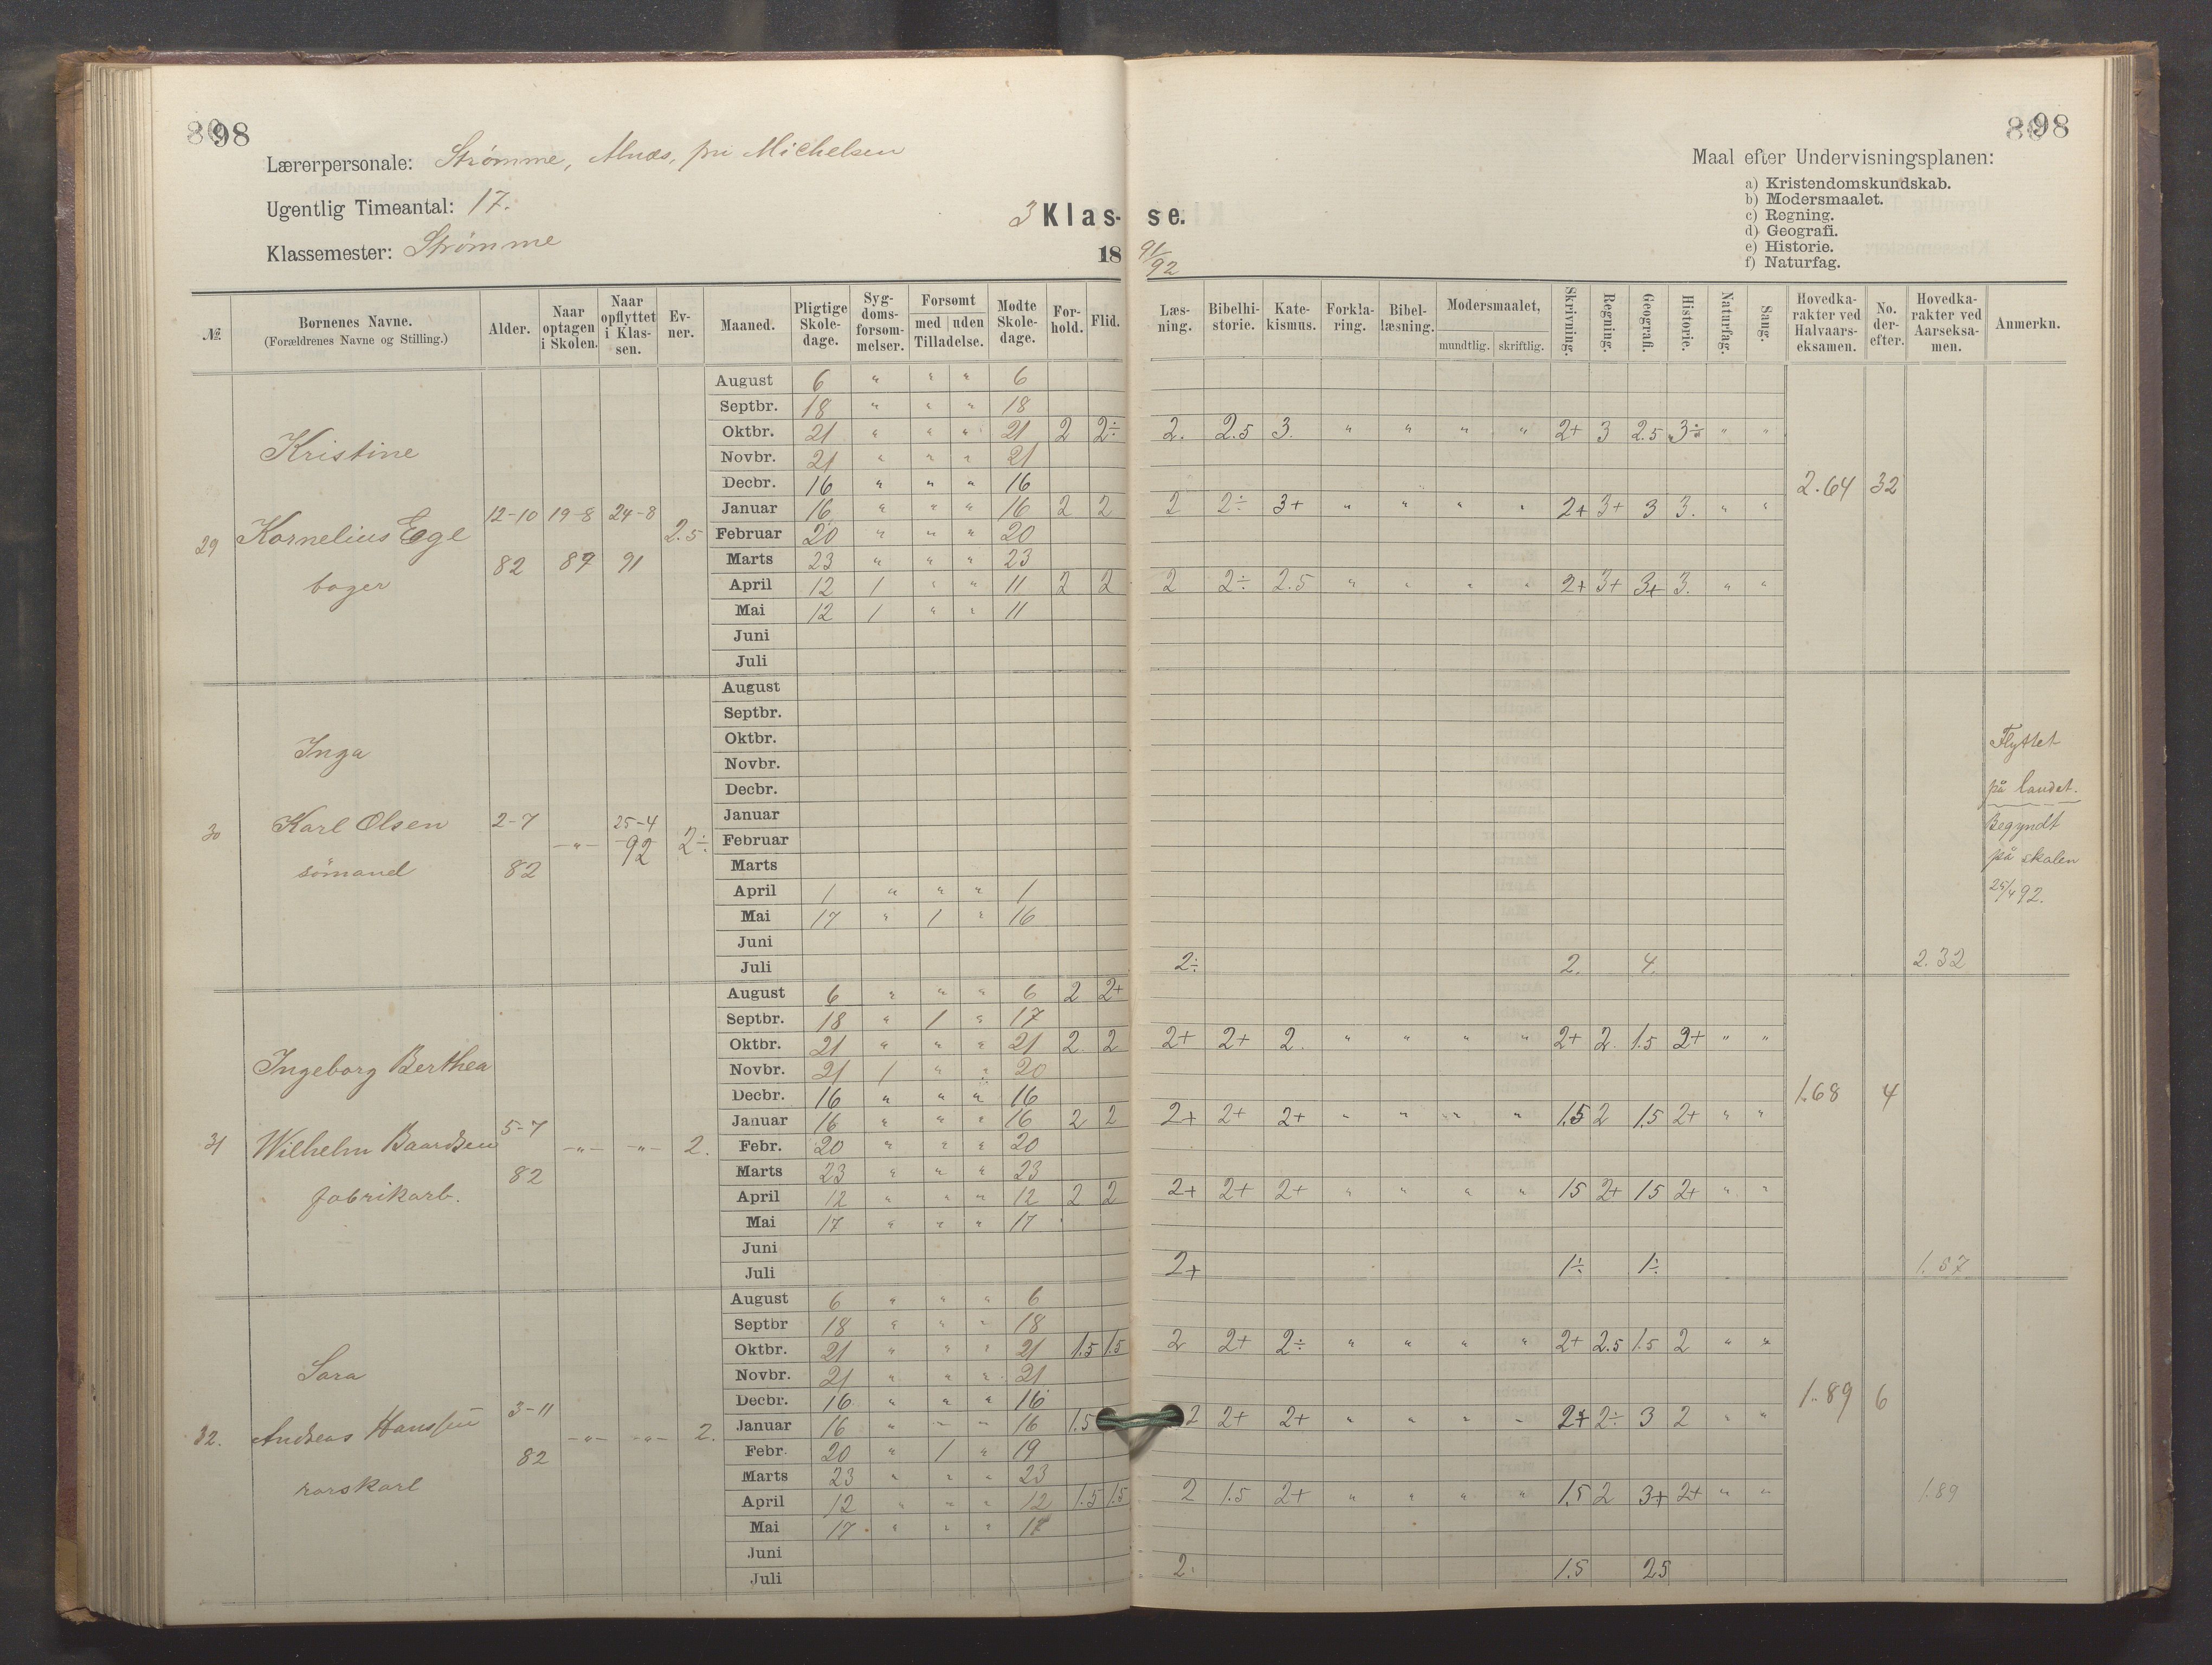 98
98
Lærerpersonale: Strømme, Alnæs, frk Michelsen
Ugentlig Timeantal: 17.
Klassemester: Strømme
3 Klasse.
18 91/92
Maal efter Undervisningsplanen:
a) Kristendomskundskab.
b) Modersmaalet.
c) Regning.
d) Geografi.
e) Historie.
f) Naturfag.
№ Børnenes Navne. (Forældrenes Navne og Stilling.) Alder. Naar optagen i Skolen. Naar opflyttet i Klassen. Evner. Maaned. Pligtige Skoledage. Sygdomsforsømmelser. Forsømt med uden Tilladelse. Mødte Skoledage. Forhold. Flid. Læsning. Bibelhistorie. Katekismus. Forklaring. Bibellæsning. Modersmaalet, mundtlig. skriftlig. Skrivning. Regning. Geografi. Historie. Naturfag. Sang. Hovedkarakter ved Halvaarseksamen. No. derefter. Hovedkarakter ved Aarseksamen. Anmerkn.
29 Kristine
Kornelius Ege
bager
12-10 82 19-8 89 24-8 91 2.5
August 6 " " " 6
Septbr. 18 " " " 18
Oktbr. 21 " " " 21 2 2÷ 2. 2.5 3. " " " " 2+ 3 2.5 3÷ " "
Novbr. 21 " " " 21
Decbr. 16 " " " 16
2.64 32
Januar 16 " " " 16 2 2 2 2÷ 3+ " " " " 2+ 3+ 3 3. " "
Februar 20 " " " 20
Marts 23 " " " 23
April 12 1 " " 11 2 2 2 2÷ 2.5 " " " " 2+ 3+ 3+ 3. " "
Mai 12 1 " " 11
Juni
Juli
30 Inga
Karl Olsen
sømand
2-7 82 -"- 25-4 92 2÷
August
Septbr.
Oktbr.
Novbr.
Decbr.
Januar
Februar
Marts
April 1 " " " 1
Mai 17 " 1 " 16
Juni
Juli 2÷ 2. 4. 2.32
Flyttet
på landet.
Begyndt
på skolen
25/4 92.
31 Ingeborg Berthea
Wilhelm Baardsen
fabrikarb.
5-7 82 -"- -"- 2.
August 6 " " " 6 2 2+
Septbr. 18 " 1 " 17
Oktbr. 21 " " " 21 2 2 2+ 2+ 2. " " " " 2+ 2. 1.5 2+ " "
Novbr. 21 1 " " 20
Decbr. 16 " " " 16
1.68 4
Januar 16 " " " 16 2 2 2+ 2+ 2+ " " " " 1.5 2 1.5 2+ " "
Febr. 20 " " " 20
Marts 23 " " " 23
April 12 " " " 12 2 2 2+ 2+ 2+ " " " " 15 2+ 15 2+ " "
Mai 17 " " " 17
Juni
Juli 2+ 1÷ 1÷ 1.67
32. Sara
Andreas Hanssen
rorskarl
3-11 82 -"- -"- 2.
August 6 " " " 6
Septbr 18 " " " 18
Oktbr. 21 " " " 21 1.5 1.5 2 2+ 2÷ " " " " 2+ 2.5 1.5 2 " "
Novbr. 21 " " " 21
Decbr. 16 " " " 16
1.89 6
Januar 16 " " " 16 1.5 2 2+ 2+ " " " " 2+ 2÷ 3 2 " "
Febr. 20 " 1 " 19
Marts 23 " " " 23
April 12 " " " 12 1.5 1.5 2 1.5 2+ " " " " 1.5 2 3+ 2+ " " 1.89
Mai 17 " " " 17
Juni
Juli 2. 1.5 25